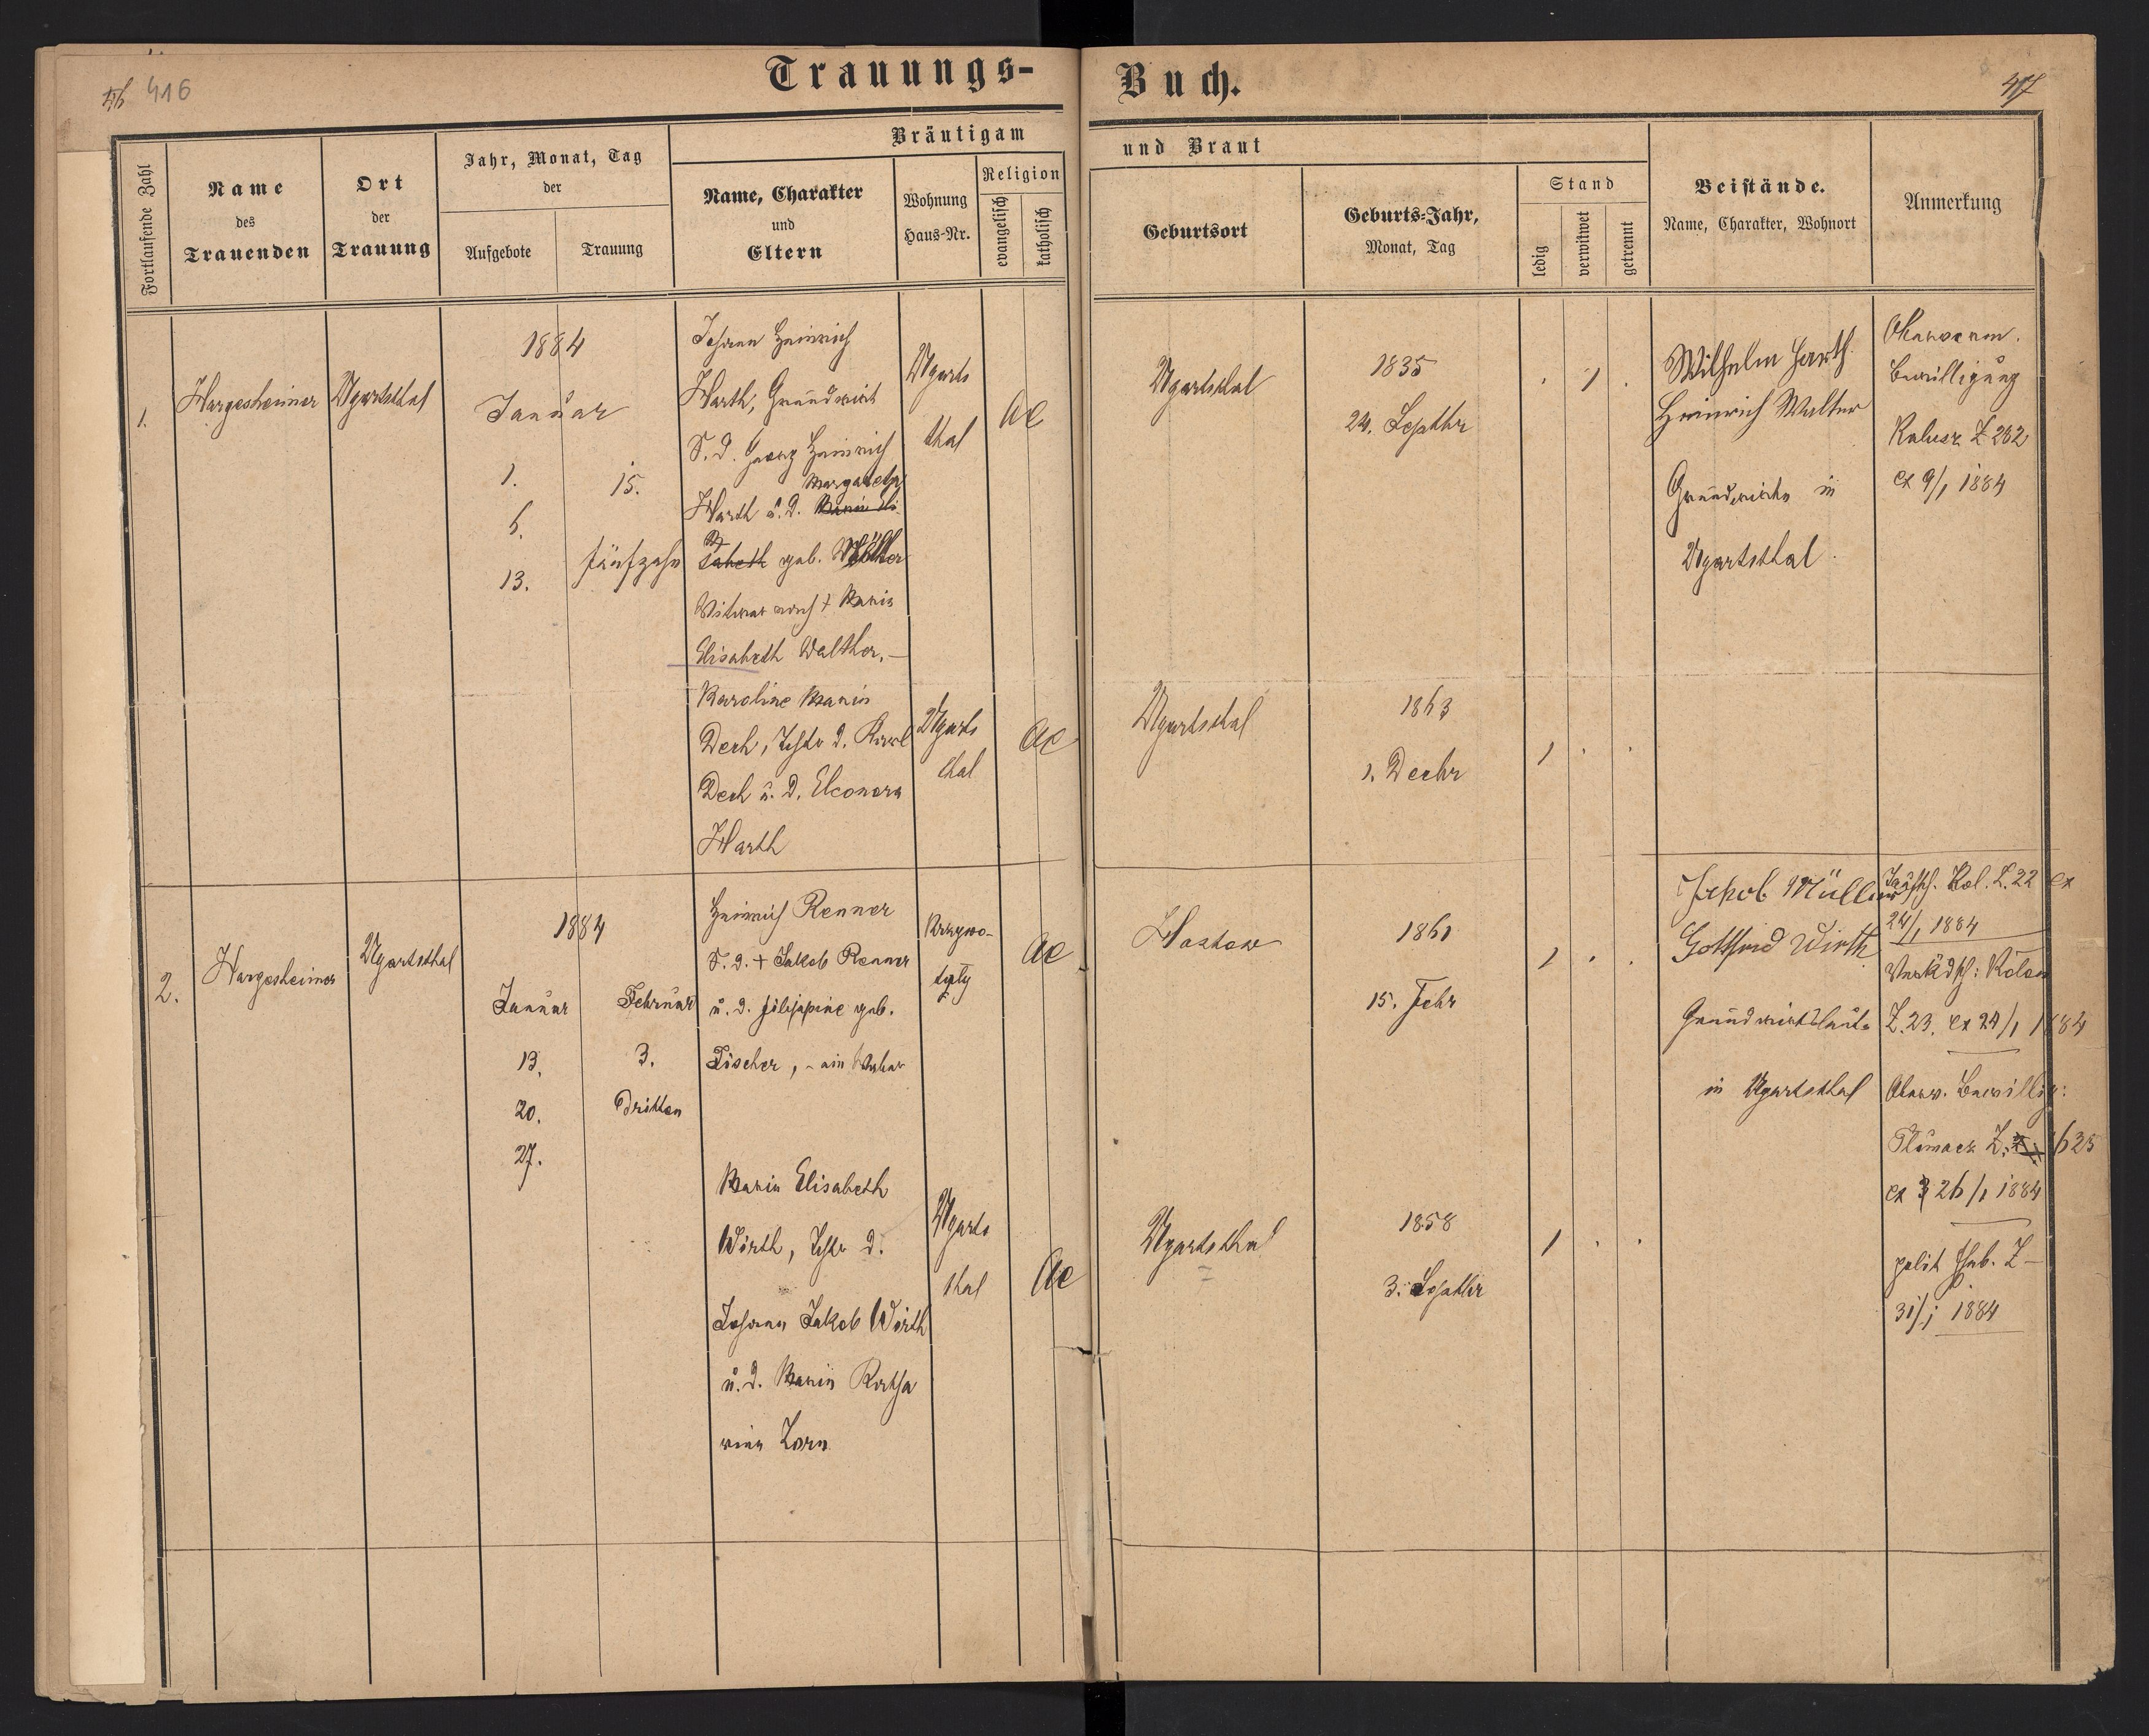 416
Trauungs-
Buch.
Fortlaufende Zahl
Name
des
Trauenden
Ort
der
Trauung
Jahr, Monat, Tag
der
Aufgebote
Trauung
Bräutigam
und Braut
Name, Charakter
und
Eltern
Wohnung
Haus-Nr.
Religion
evangelisch
katholisch
Geburtsort
Geburts-Jahr,
Monat, Tag
Stand
ledig
verwitwet
getrennt
Beistände.
Name, Charakter, Wohnort
Anmerkung
1.
Hargesheimer
Ugartsthal
1884
Januar
1.
6.
13.
15.
fünfzehn
Johann Heinrich
Harth, Grundwirt
S. d. Georg Heinrich
Margaretha
Harth u. d.
geb.
Witwer nach † Maria
Elisabeth Walther.
Ugarts
thal
AC
Ugartsthal
1835
24. Septbr
. 1 .
Wilhelm Harth
Heinrich Walter
Grundwirte in
Ugartsthal.
Bewilligung
Kalusz Z 262
ex 9/1 1884
Karoline Maria
Dech, Tchtr d. Karl
Dech u. d. Eleonora
Harth
Ugarts
thal
AC
Ugartsthal
1863
1. Decbr
1 . .
2.
Hargesheimer
Ugartsthal
1884
Januar
13.
20.
27.
Februar
3.
Dritten
Heinrich Renner
S. d. † Jakob Renner
u. d. geb.
Fischer,
AC
1861
15. Febr
1 . .
Jakob Müller
Gottfried Wirth
Grundwirtsleute
in Ugartsthal
Taufsch. Z. 22 ex
24/1 1884
Z. 23. ex 24/1 1884
Bewillig:
Tlumacz Z. 1625
ex 26/1 1884
31/1 1884
Maria Elisabeth
Wirth, Tchtr d.
Johann Jakob Wirth
u. d. Maria Katha
rina Zorn
Ugarts
thal
AC
Ugartsthal
1858
3. Septbr
1 . .